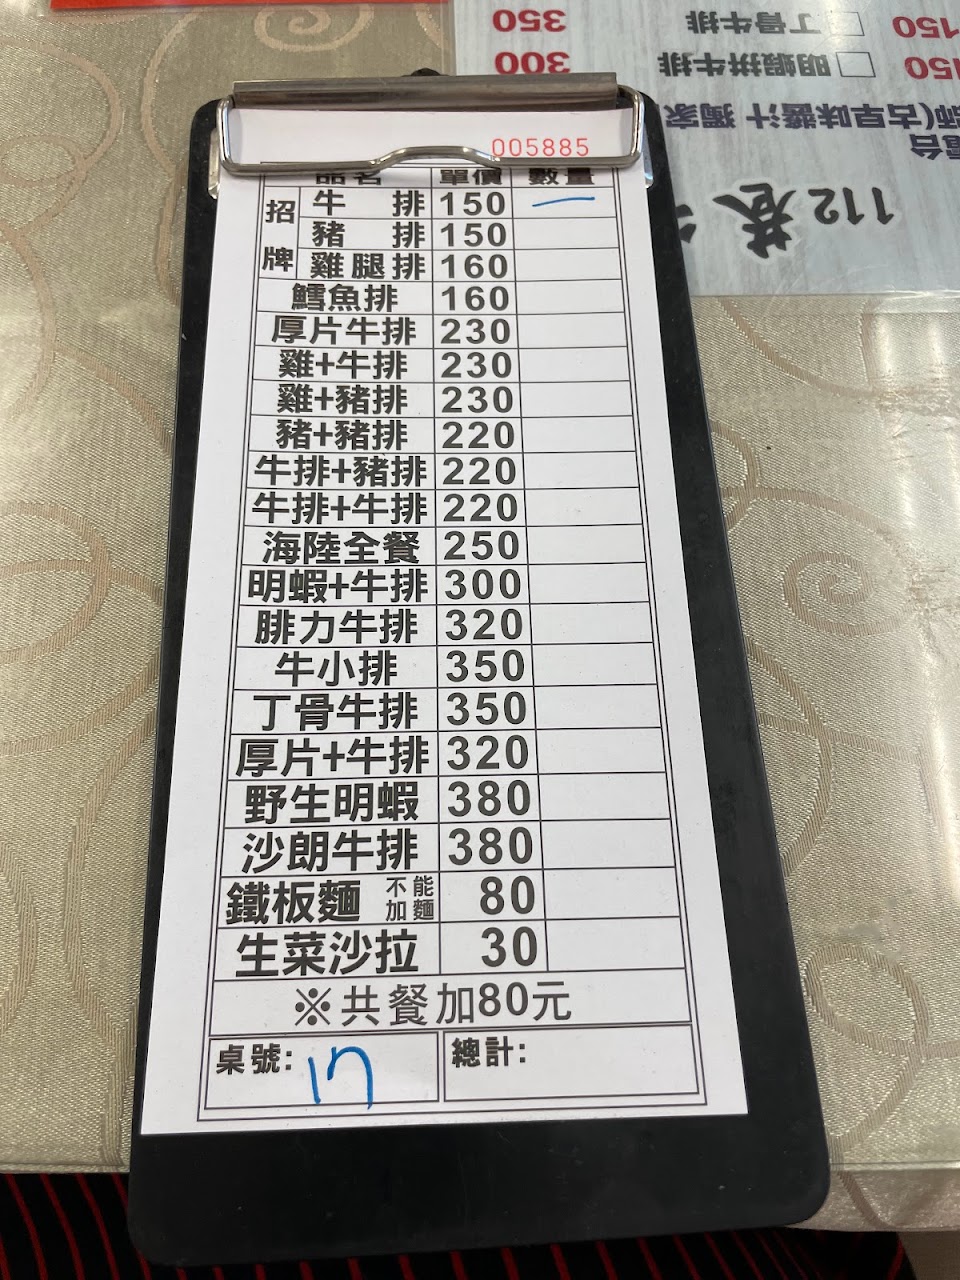 350
丁骨牛排
150
300
明蝦拼牛排
150
師(古早味醬汁 獨家
電台
112巷
005885
品名 單價 數量
招牌
牛排 150 一
豬排 150
雞腿排 160
鱈魚排 160
厚片牛排 230
雞+牛排 230
雞+豬排 230
豬+豬排 220
牛排+豬排 220
牛排+牛排 220
海陸全餐 250
明蝦+牛排 300
腓力牛排 320
牛小排 350
丁骨牛排 350
厚片+牛排 320
野生明蝦 380
沙朗牛排 380
鐵板麵 不能加麵 80
生菜沙拉 30
※共餐加80元
桌號: 17 總計: